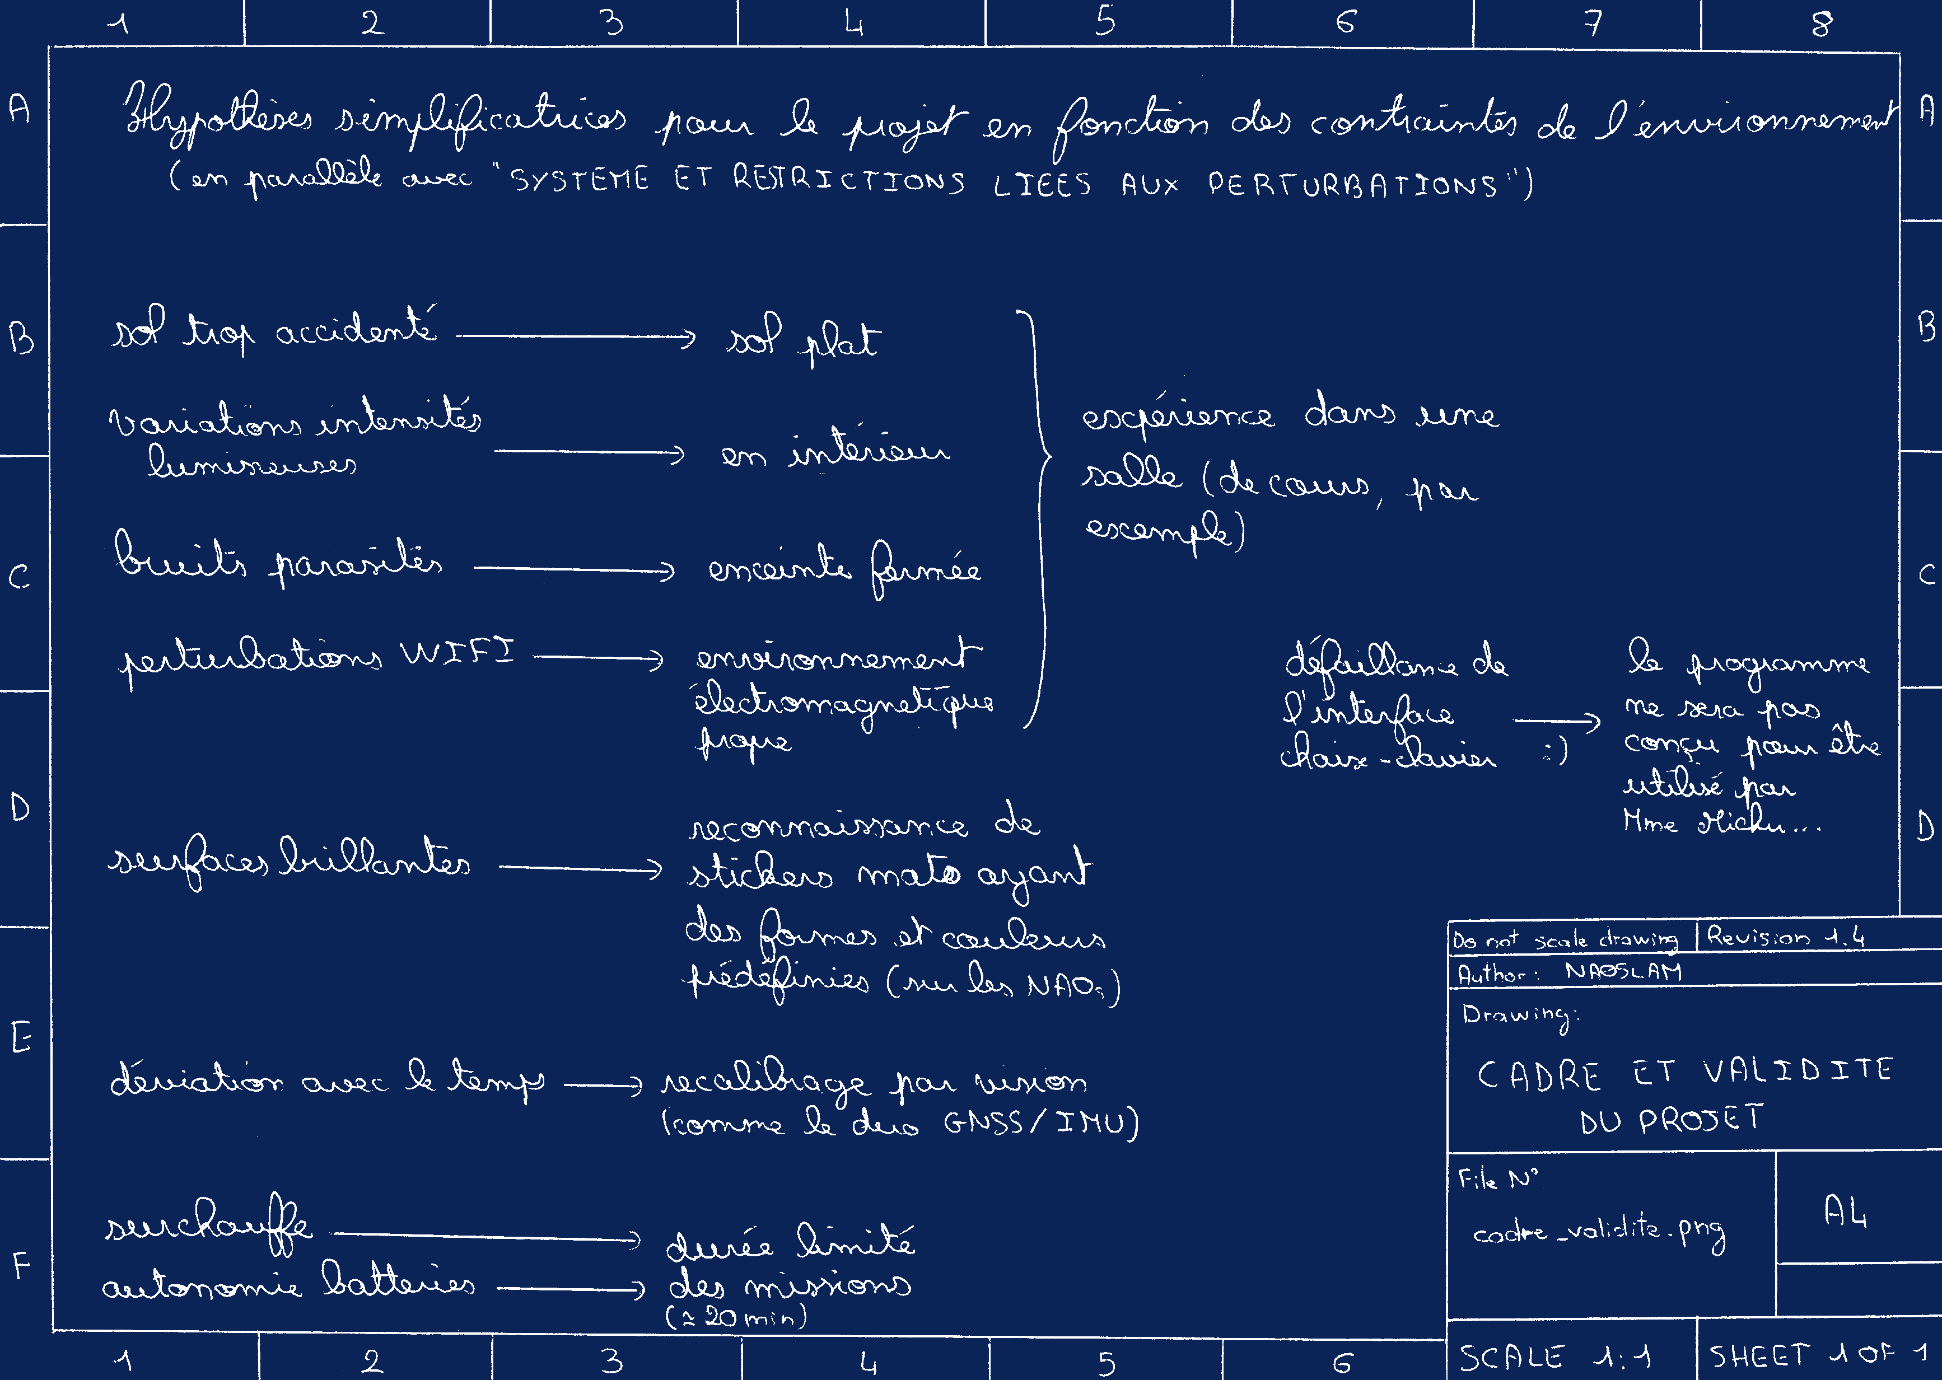 1 2 3 4 5 6 7 8
A A
Hypothèses simplificatrices pour le projet en fonction des contraintes de l'environnement
(en parallèle avec "SYSTEME ET RESTRICTIONS LIEES AUX PERTURBATIONS")
B B
sol trop accidenté → sol plat
variations intensités
lumineuses → en intérieur
expérience dans une
salle (de cours, par
exemple)
C C
bruits parasites → enceinte fermée
perturbations WIFI → environnement
électromagnétique
propre
défaillance de
l'interface
chaix-clavier :)
→ le programme
ne sera pas
conçu pour être
utilisé par
Mme Michu...
D D
surfaces brillantes → reconnaissance de
stickers mats ayant
des formes et couleurs
prédéfinies (sur les NAOs)
E
déviation avec le temps → recalibrage par vision
(comme le duo GNSS/IMU)
F
surchauffe → durée limité
autonomie batteries → des missions
(≃ 20 min)
Do not scale drawing Revision 1.4
Author: NAOSLAM
Drawing:
CADRE ET VALIDITE
DU PROJET
File N°
cadre_validite.png
A4
SCALE 1:1 SHEET 1 OF 1
1 2 3 4 5 6